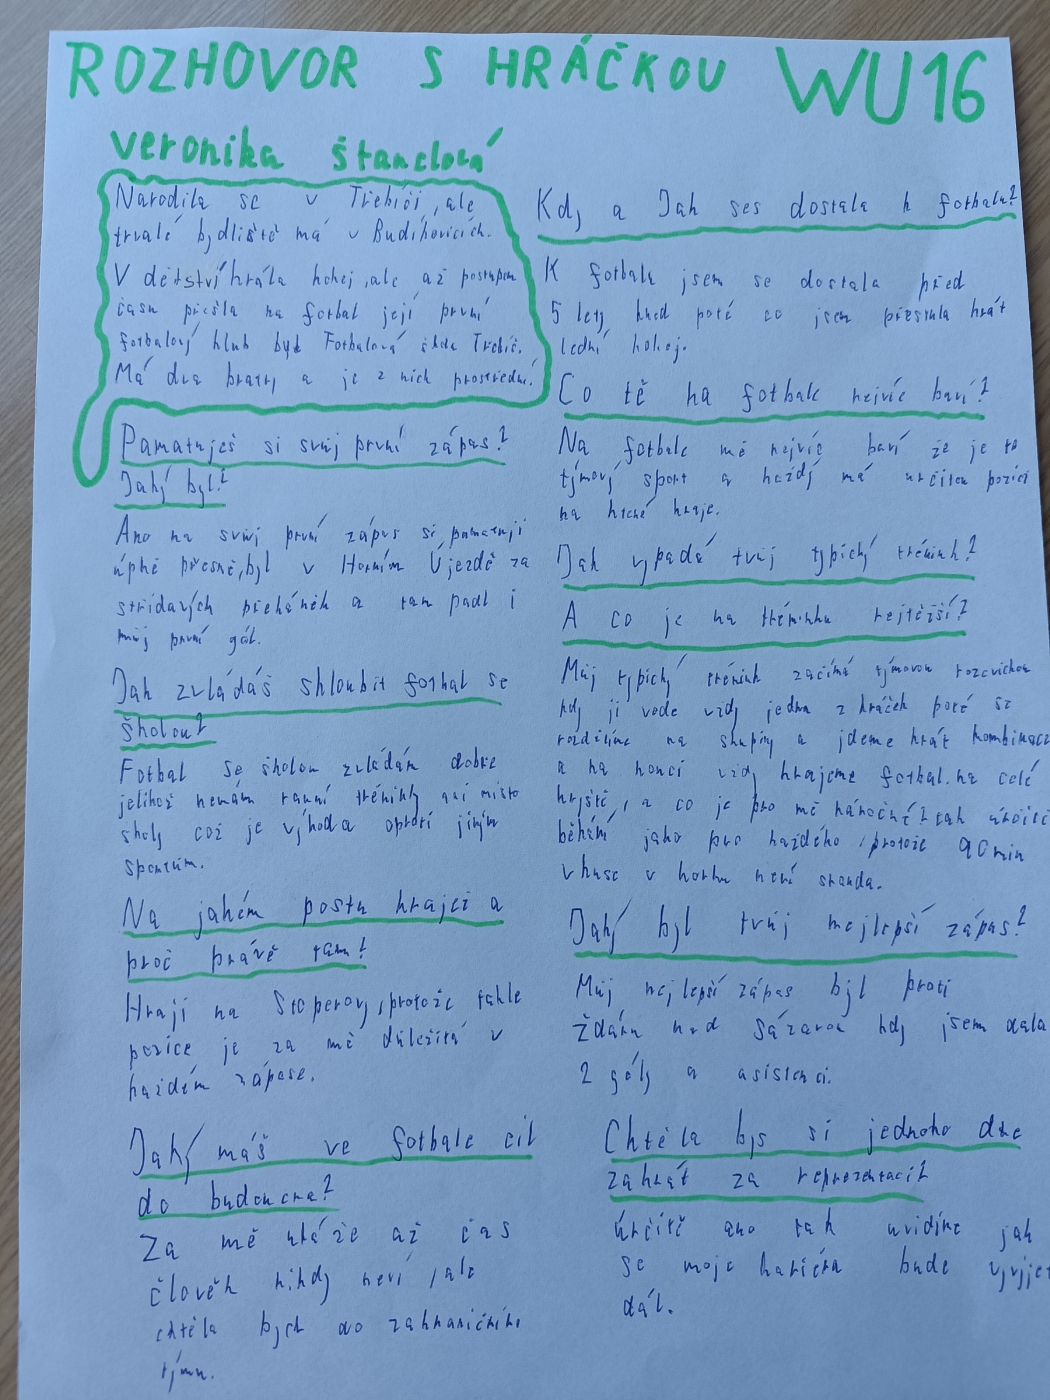 ROZHOVOR S HRÁČKOU WU16
veronika štanclová
Narodila se v Třebíči, ale
trvalé bydliště má v Budíkovicích.
V dětství hrála hokej, ale až postupem
času přešla na fotbal její první
fotbalový klub byl Fotbalová škola Třebíč.
Má dva bratry a je z nich prostřední.
Pamatuješ si svůj první zápas?
Jaký byl?
Ano na svůj první zápas si pamatuji
úplně přesně, byl v Horním Újezdě za
střídavých přeháněk a tam padl i
můj první gól.
Jak zvládáš skloubit fotbal se
školou?
Fotbal se školou zvládám dobře
jelikož nemám ranní tréninky ani místo
školy což je výhoda oproti jiným
sportům.
Na jakém postu hraješ a
proč právě tam?
Hraji na Stoperovy, protože tahle
pozice je za mě důležitá v
každém zápase.
Jaký máš ve fotbale cíl
do budoucna?
Za mě ukáže až čas
člověk nikdy neví, ale
chtěla bych do zahraničního
týmu.
Kdy a Jak ses dostala k fotbalu?
K fotbalu jsem se dostala před
5 lety hned poté co jsem přestala hrát
lední hokej.
Co tě na fotbale nejvíc baví?
Na fotbale mě nejvíc baví že je to
týmový sport a každý má určitou pozici
na které hraje.
Jak vypadá tvůj typický trénink?
A co je na tréninku nejtěžší?
Můj typický trénink začíná týmovou rozcvičkou
kdy ji vede vždy jedna z hráček poté se
rozdělíme na skupiny a jdeme hrát kombinace
a na konci vždy hrajeme fotbal na celé
hřiště, a co je pro mě náročné? tak určitě
běhání jako pro každého, protože 90 min
v kuse v horku není sranda.
Jaký byl tvůj nejlepší zápas?
Můj nejlepší zápas byl proti
Ždáru nad Sázavou kdy jsem dala
2 góly a asistenci.
Chtěla bys si jednoho dne
zahrát za reprezentaci?
Určitě ano tak uvidíme jak
se moje kariéra bude vyvíjet
dál.